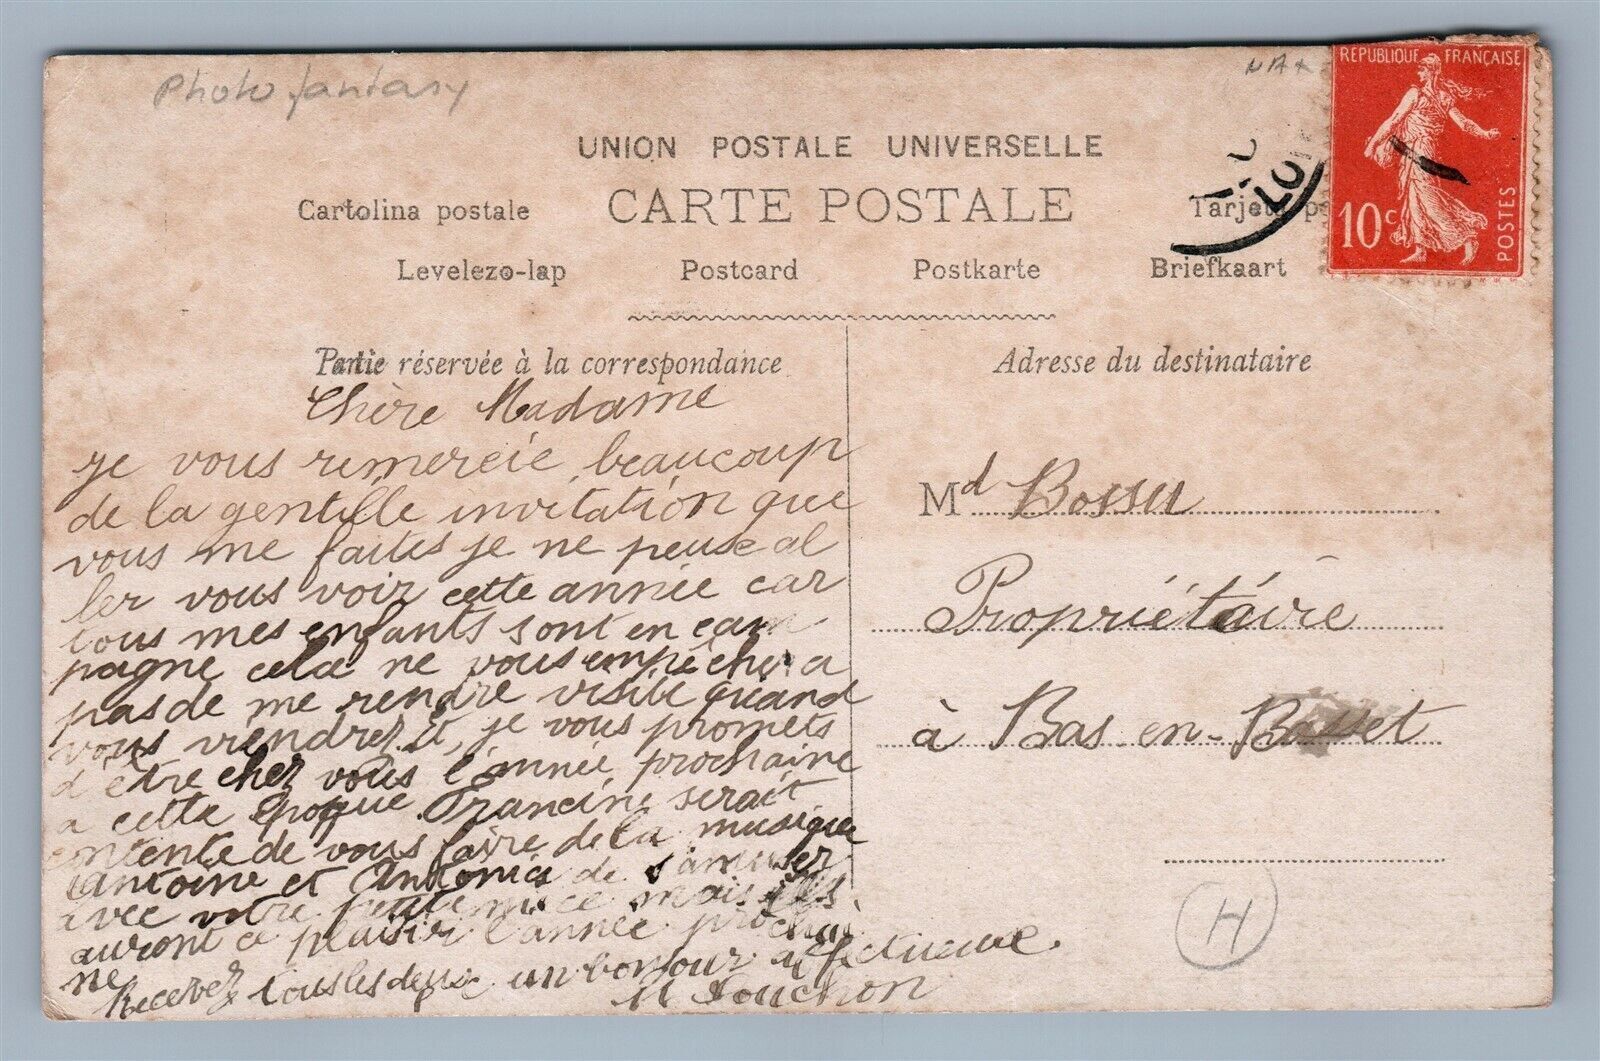 Photo fantasy
REPUBLIQUE FRANÇAISE
10c
POSTES
UNION POSTALE UNIVERSELLE
Cartolina postale CARTE POSTALE Tarjeta po
Levelezo-lap Postcard Postkarte Briefkaart
Partie réservée à la correspondance
Adresse du destinataire
Chère Madame
je vous remercie beaucoup
de la gentille invitation que
vous me faites je ne peuse al
ler vous voir cette année car
tous mes enfants sont en cam
pagne cela ne vous empêchera
pas de me rendre visite quand
vous viendrez. Et, je vous promets
d'être chez vous l'année prochaine
a cette époque Francine serait
contente de vous faire de la musique
Antoine et Antonia de s'amuser
avec votre petite niece mais ils
auront ce plaisir l'année prochai
ne
Recevez tous les deux un bonjour affectueux
M Souchon
Md Bossu
Propriétaire
à Bas-en-Basset
H